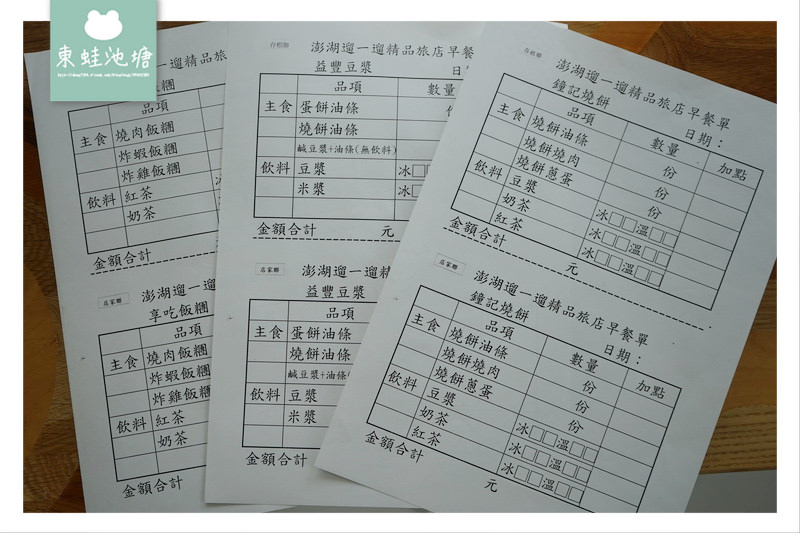 東蛙池塘
飯糰
品項
主食 燒肉飯糰
炸蝦飯糰
炸雞飯糰
飲料 紅茶
奶茶
金額合計
店家聯
澎湖遛一遛
享吃飯糰
品項
主食 燒肉飯糰
炸蝦飯糰
炸雞飯糰
飲料 紅茶
奶茶
金額合計
存根聯
澎湖遛一遛精品旅店早餐
益豐豆漿
品項 數量
主食 蛋餅油條
燒餅油條
鹹豆漿+油條(無飲料)
飲料 豆漿 冰□
米漿 冰□
金額合計 元
店家聯
澎湖遛一遛精
益豐豆漿
品項
主食 蛋餅油條
燒餅油條
鹹豆漿+油條
飲料 豆漿
米漿
金額合計
存根聯
澎湖遛一遛精品旅店早餐單
鐘記燒餅 日期：
品項 數量 加點
主食 燒餅油條 份
燒餅燒肉 份
燒餅蔥蛋 份
飲料 豆漿 冰□□溫□□
奶茶 冰□□溫□□
紅茶 冰□□溫□□
金額合計 元
店家聯
澎湖遛一遛精品旅店早餐單
鐘記燒餅 日期：
品項 數量 加點
主食 燒餅油條 份
燒餅燒肉 份
燒餅蔥蛋 份
飲料 豆漿 冰□□溫□□
奶茶 冰□□溫□□
紅茶 冰□□溫□□
金額合計 元